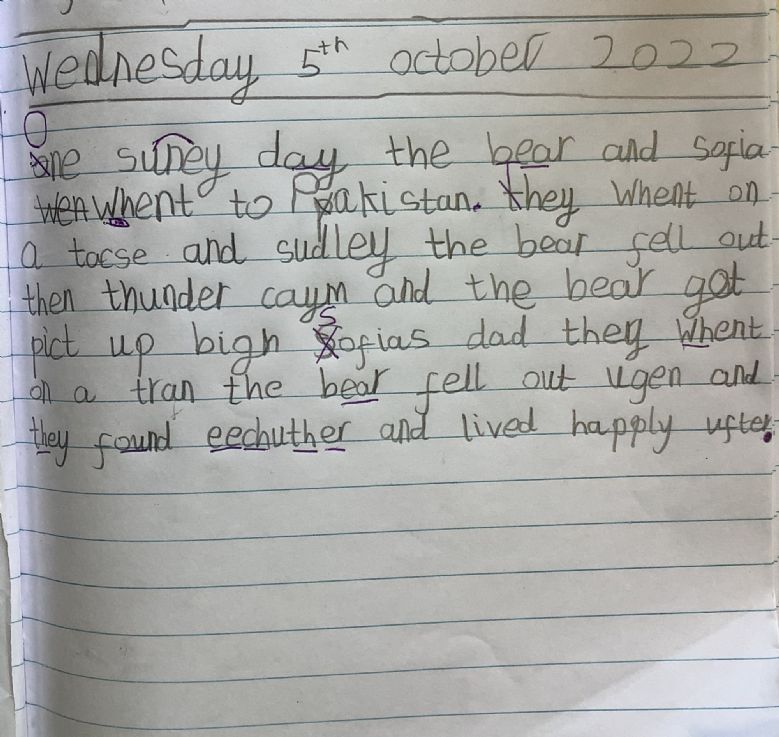 Wednesday 5th october 2022
One suney day the bear and Sofia
whent to Pakistan. they whent on
a tacse and sudley the bear fell out
then thunder caym and the bear got
pict up bigh Sofias dad they whent
on a tran the bear fell out ugen and
they found eechuther and lived happly ufter.